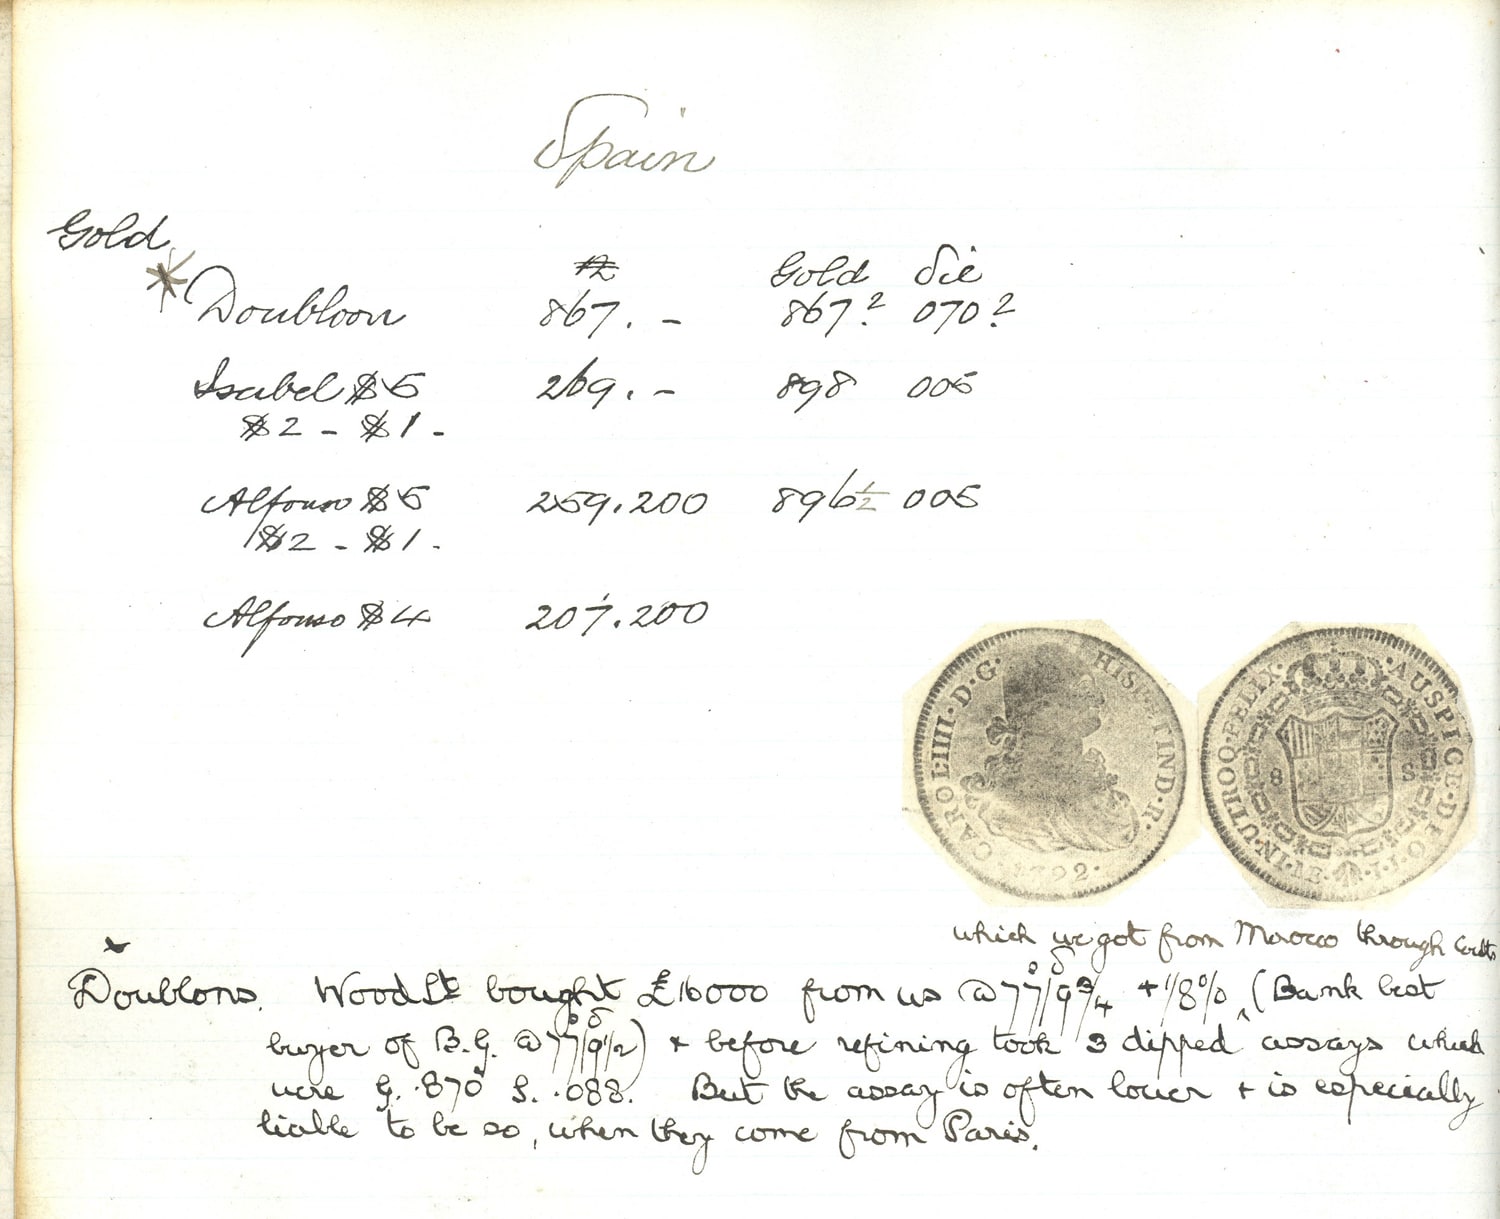 Spain
Gold
Gold Sil
Doubloon 867. - 867? 070?
Isabel $5 269. - 898 005
$2 - $1.
Alfonso $5 259.200 896½ 005
$2 - $1.
Alfonso $4 207.200
CAROL·IIII·D·G· HISP·ET IND·R·
·1792·
·IN·UTROQ·FELIX· ·AUSPICE·DEO·
8 S
which we got from Morocco through
Doublons. Wood St. bought £16000 from us @ 77/9¾ + 1/8% (Bank best
buyer of B.G. @ 77/9½) + before refining took 3 dipped assays which
were G. .870 S. .088. But the assay is often lower + is especially
liable to be so, when they come from Paris.